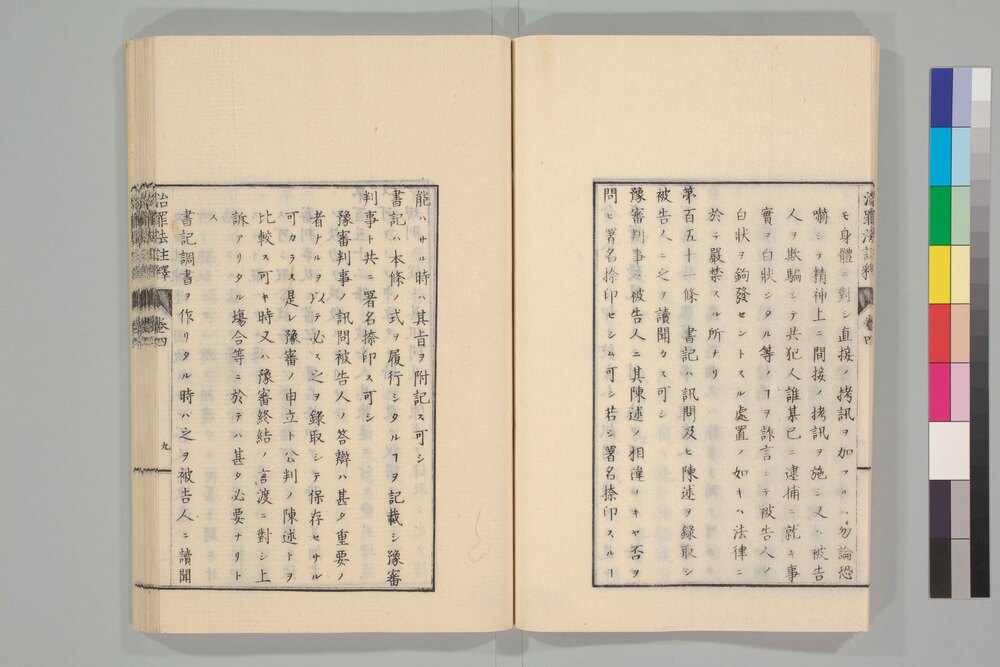 治罪法註釋 卷四
モ身體ニ對シ直接ノ拷訊ヲ加フルハ勿論恐
嚇シテ精神上ニ間接ノ拷訊ヲ施シ又ハ被告
人ヲ欺騙シテ共犯人誰某已ニ逮捕ニ就キ事
實ヲ白狀シタル等ノヿヲ詐言シテ被告人ノ
白狀ヲ鉤發セントスル處置ノ如キハ法律ニ
於テ嚴禁スル所ナリ
第百五十一條 書記ハ訊問及ヒ陳述ヲ錄取シ
被告人ニ之ヲ讀聞カス可シ
豫審判事ハ被告人ニ其陳述ノ相違ヲキヤ否ヲ
問ヒ署名捺印セシム可シ若シ署名捺印スルヿ
能ハサル時ハ其旨ヲ附記ス可シ
書記ハ本條ノ式ヲ履行シタルヿヲ記載シ豫審
判事ト共ニ署名捺印ス可シ
豫審判事ノ訊問被告人ノ答辯ハ甚タ重要ノ
者ナルヲ以テ必ス之ヲ錄取シテ保存セサル
可カラス是レ豫審ノ申立ト公判ノ陳述トヲ
比較ス可キ時又ハ豫審終結ノ言渡ニ對シ上
訴アリタル塲合等ニ於テハ甚タ必要ナリト
ス
書記調書ヲ作リタル時ハ之ヲ被告人ニ讀聞
治罪法註釋 卷四 九